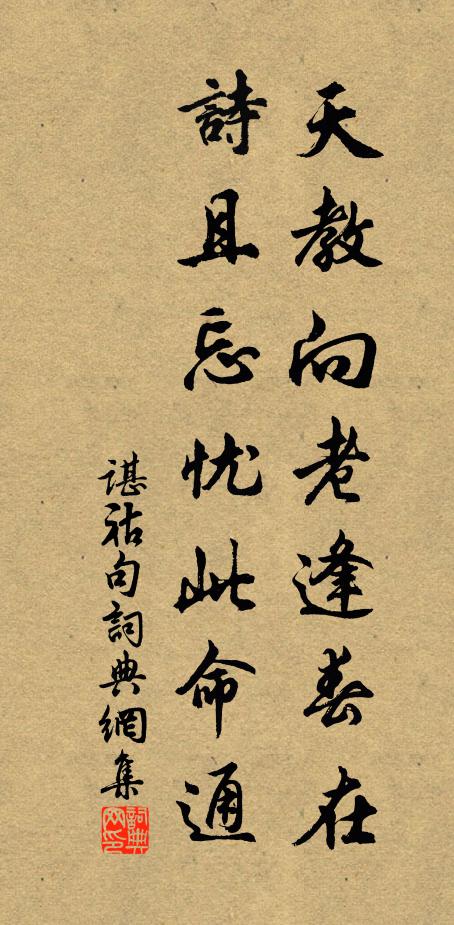 天教向老逢春在
詩且忘忧此命通
谌祜句詞典網集
詞典网印